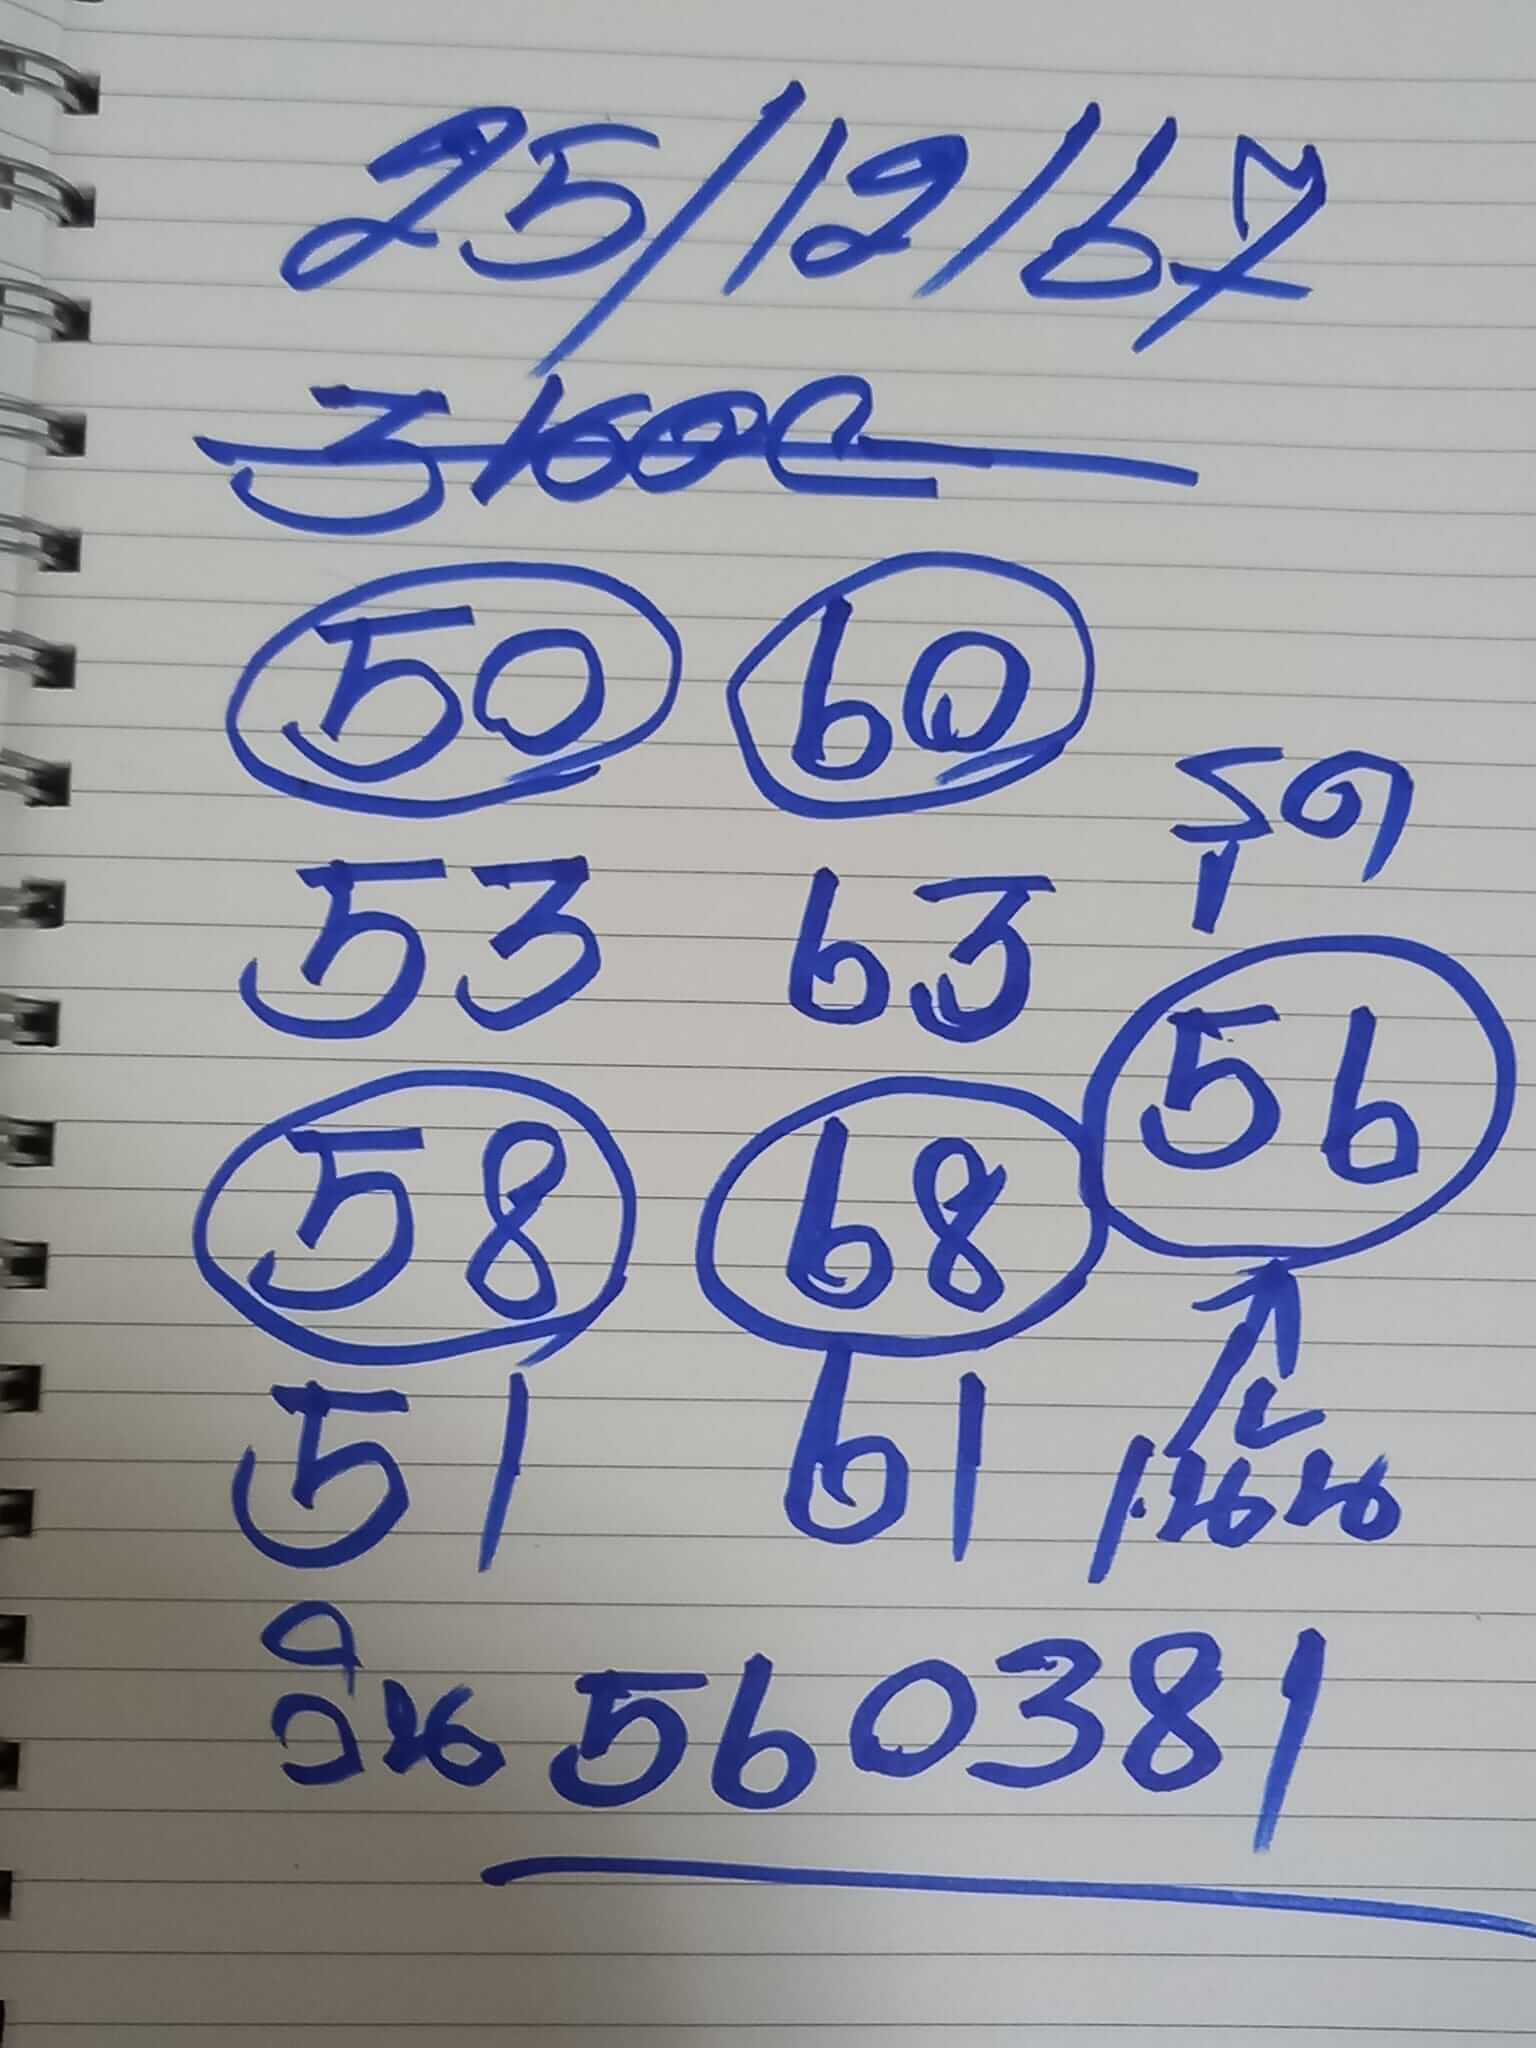 25/12/67
50 60
รูด
53 63
56
58 68
51 61 เน้น
วิน 560381